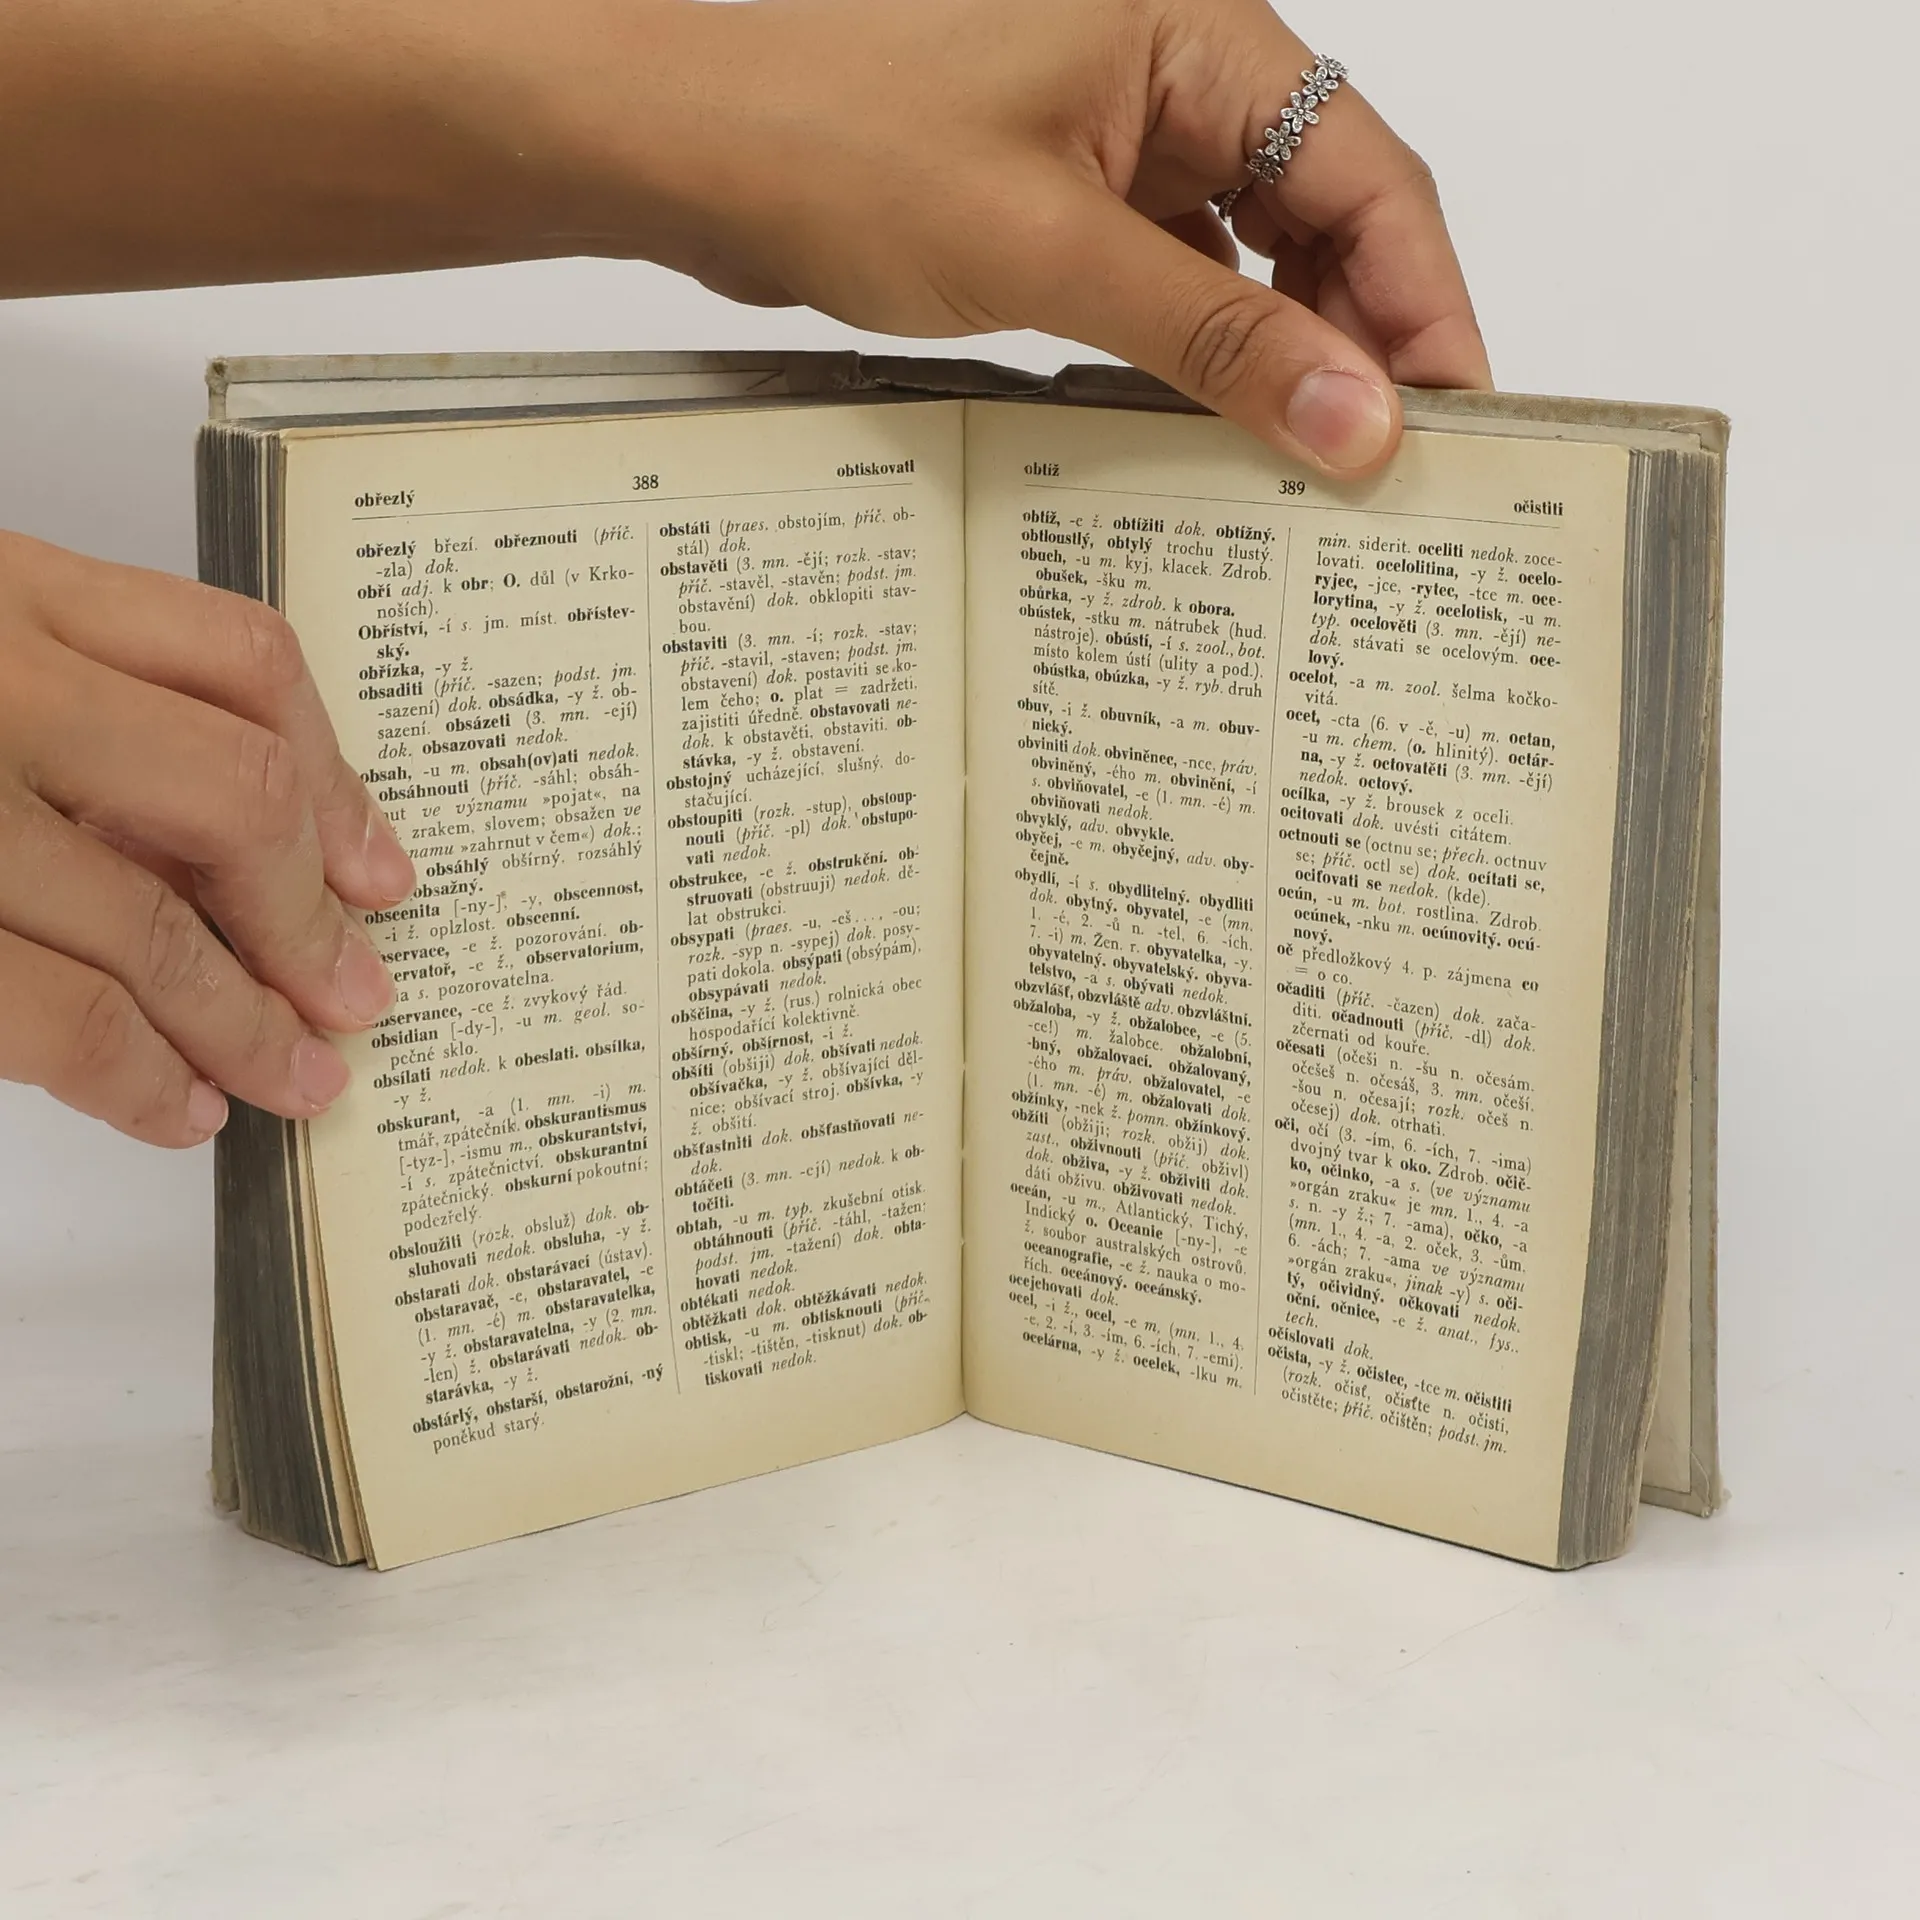 obřezlý 388 obtiskovati
obřezlý březí. obřeznouti (příč.
-zla) dok.
obří adj. k obr; O. důl (v Krko-
noších).
Obříství, -í s. jm. míst. obřístev-
ský.
obřízka, -y ž.
obsaditi (příč. -sazen; podst. jm.
-sazení) dok. obsádka, -y ž. ob-
sazení. obsázeti (3. mn. -ejí)
dok. obsazovati nedok.
obsah, -u m. obsah(ov)ati nedok.
obsáhnouti (příč. -sáhl; obsáh-
nut ve významu »pojat«, na
zrakem, slovem; obsažen ve
»zahrnut v čem«) dok.;
obsáhlý obšírný, rozsáhlý
obsažný.
obscenita [-ny-], -y, obscennost,
-i ž. oplzlost. obscenní.
-e ž. pozorování. ob-
-e ž., observatorium,
s. pozorovatelna.
-ce ž. zvykový řád.
obsidian [-dy-], -u m. geol. so-
pečné sklo.
obsílati nedok. k obeslati. obsílka,
-y ž.
obskurant, -a (1. mn. -i) m.
tmář, zpátečník. obskurantismus
[-tyz-], -ismu m., obskurantství,
-í s. zpátečnictví. obskurantní
zpátečnický. obskurní pokoutní;
podezřelý.
obsloužiti (rozk. obsluž) dok. ob-
sluhovati nedok. obsluha, -y ž.
obstarati dok. obstarávací (ústav).
obstaravač, -e, obstaravatel, -e
(1. mn. -é) m. obstaravatelka,
-y ž. obstaravatelna, -y (2. mn.
-len) ž. obstarávati nedok. ob-
starávka, -y ž.
obstárlý, obstarší, obstarožní, -ný
poněkud starý.
obstáti (praes. obstojím, příč. ob-
stál) dok.
obstavěti (3. mn. -ějí; rozk. -stav;
příč. -stavěl, -stavěn; podst. jm.
obstavění) dok. obklopiti stav-
bou.
obstaviti (3. mn. -í; rozk. -stav;
příč. -stavil, -staven; podst. jm.
obstavení) dok. postaviti se ko-
lem čeho; o. plat = zadržeti,
zajistiti úředně. obstavovati ne-
dok. k obstavěti, obstaviti. ob-
stávka, -y ž. obstavení.
obstojný ucházející, slušný, do-
stačující.
obstoupiti (rozk. -stup), obstoup-
nouti (příč. -pl) dok. obstupo-
vati nedok.
obstrukce, -e ž. obstrukční. ob-
struovati (obstruuji) nedok. dě-
lat obstrukci.
obsypati (praes. -u, -eš..., -ou;
rozk. -syp n. -sypej) dok. posy-
pati dokola. obsýpati (obsýpám),
obsypávati nedok.
obščina, -y ž. (rus.) rolnická obec
hospodařící kolektivně.
obšírný. obšírnost, -i ž.
obšíti (obšiji) dok. obšívati nedok.
obšívačka, -y ž. obšívající děl-
nice; obšívací stroj. obšívka, -y
ž. obšití.
obšťastniti dok. obšťastňovati ne-
dok.
obtáčeti (3. mn. -ejí) nedok. k ob-
točiti.
obtah, -u m. typ. zkušební otisk.
obtáhnouti (příč. -táhl, -tažen;
podst. jm. -tažení) dok. obta-
hovati nedok.
obtékati nedok.
obtěžkati dok. obtěžkávati nedok.
obtisk, -u m. obtisknouti (příč.
-tiskl; -tištěn, -tisknut) dok. ob-
tiskovati nedok.
obtíž 389 očistiti
obtíž, -e ž. obtížiti dok. obtížný.
obtloustlý, obtylý trochu tlustý.
obuch, -u m. kyj, klacek. Zdrob.
obušek, -šku m.
obůrka, -y ž. zdrob. k obora.
obústek, -stku m. nátrubek (hud.
nástroje). obústí, -í s. zool., bot.
místo kolem ústí (ulity a pod.).
obústka, obúzka, -y ž. ryb. druh
sítě.
obuv, -i ž. obuvník, -a m. obuv-
nický.
obviniti dok. obviněnec, -nce, práv.
obviněný, -ého m. obvinění, -í
s. obviňovatel, -e (1. mn. -é) m.
obviňovati nedok.
obvyklý, adv. obvykle.
obyčej, -e m. obyčejný, adv. oby-
čejně.
obydlí, -í s. obydlitelný. obydliti
dok. obytný. obyvatel, -e (mn.
1. -é, 2. -ů n. -tel, 6. -ích,
7. -i) m. Žen. r. obyvatelka, -y.
obyvatelný. obyvatelský. obyva-
telstvo, -a s. obývati nedok.
obzvlášť, obzvláště adv. obzvláštní.
obžaloba, -y ž. obžalobce, -e (5.
-ce!) m. žalobce. obžalobní,
-bný, obžalovací. obžalovaný,
-ého m. práv. obžalovatel, -e
(1. mn. -é) m. obžalovati dok.
obžínky, -nek ž. pomn. obžínkový.
obžíti (obžiji; rozk. obžij) dok.
zast., obživnouti (příč. obživl)
dok. obživa, -y ž. obživiti dok.
dáti obživu. obživovati nedok.
oceán, -u m., Atlantický, Tichý,
Indický o. Oceanie [-ny-], -e
ž. soubor australských ostrovů.
oceanografie, -e ž. nauka o mo-
řích. oceánový. oceánský.
ocejchovati dok.
ocel, -i ž., ocel, -e m, (mn. 1., 4.
-e, 2. -í, 3. -ím, 6. -ích, 7. -emi).
ocelárna, -y ž. ocelek, -lku m.
min. siderit. oceliti nedok. zoce-
lovati. ocelolitina, -y ž. ocelo-
ryjec, -jce, -rytec, -tce m. oce-
lorytina, -y ž. ocelotisk, -u m.
typ. ocelověti (3. mn. -ějí) ne-
dok. stávati se ocelovým. oce-
lový.
ocelot, -a m. zool. šelma kočko-
vitá.
ocet, -cta (6. v -ě, -u) m. octan,
-u m. chem. (o. hlinitý). octár-
na, -y ž. octovatěti (3. mn. -ějí)
nedok. octový.
ocílka, -y ž. brousek z oceli.
ocitovati dok. uvésti citátem.
octnouti se (octnu se; přech. octnuv
se; příč. octl se) dok. ocítati se,
ociťovati se nedok. (kde).
ocún, -u m. bot. rostlina. Zdrob.
ocúnek, -nku m. ocúnovitý. ocú-
nový.
oč předložkový 4. p. zájmena co
= o co.
očaditi (příč. -čazen) dok. zača-
diti. očadnouti (příč. -dl) dok.
zčernati od kouře.
očesati (očeši n. -šu n. očesám.
očešeš n. očesáš, 3. mn. očeší.
-šou n. očesají; rozk. očeš n.
očesej) dok. otrhati.
oči, očí (3. -ím, 6. -ích, 7. -ima)
dvojný tvar k oko. Zdrob. očič-
ko, očinko, -a s. (ve významu
»orgán zraku« je mn. 1., 4. -a
s. n. -y ž.; 7. -ama), očko, -a
(mn. 1., 4. -a, 2. oček, 3. -ům.
6. -ách; 7. -ama ve významu
»orgán zraku«, jinak -y) s. oči-
tý, očividný. očkovati nedok.
oční. očnice, -e ž. anat., fys.,
tech.
očíslovati dok.
očista, -y ž. očistec, -tce m. očistiti
(rozk. očisť, očisťte n. očisti,
očistěte; příč. očištěn; podst. jm.